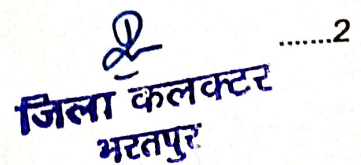 .......2
जिला कलक्टर
भरतपुर